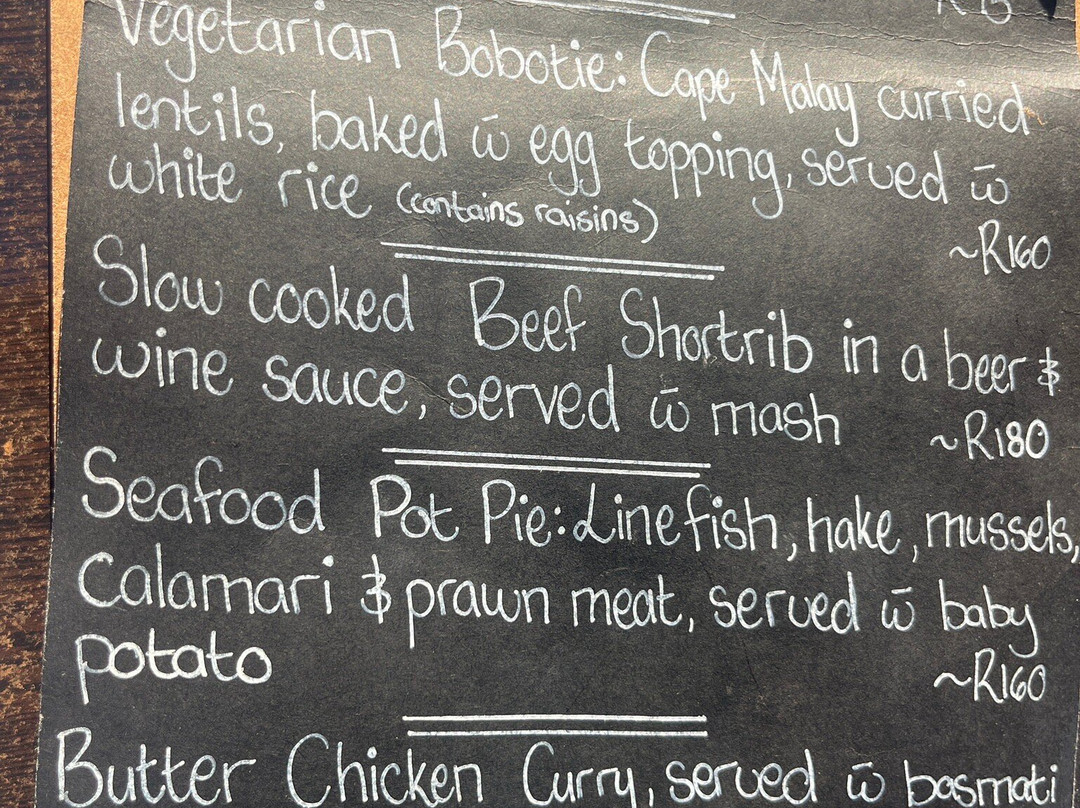 Vegetarian Bobotie: Cape Malay curried
lentils, baked w̄ egg topping, served w̄
white rice (contains raisins)
~R160
Slow cooked Beef Shortrib in a beer &
wine sauce, served w̄ mash
~R180
Seafood Pot Pie: Linefish, hake, mussels,
Calamari & prawn meat, served w̄ baby
potato
~R160
Butter Chicken Curry, served w̄ basmati